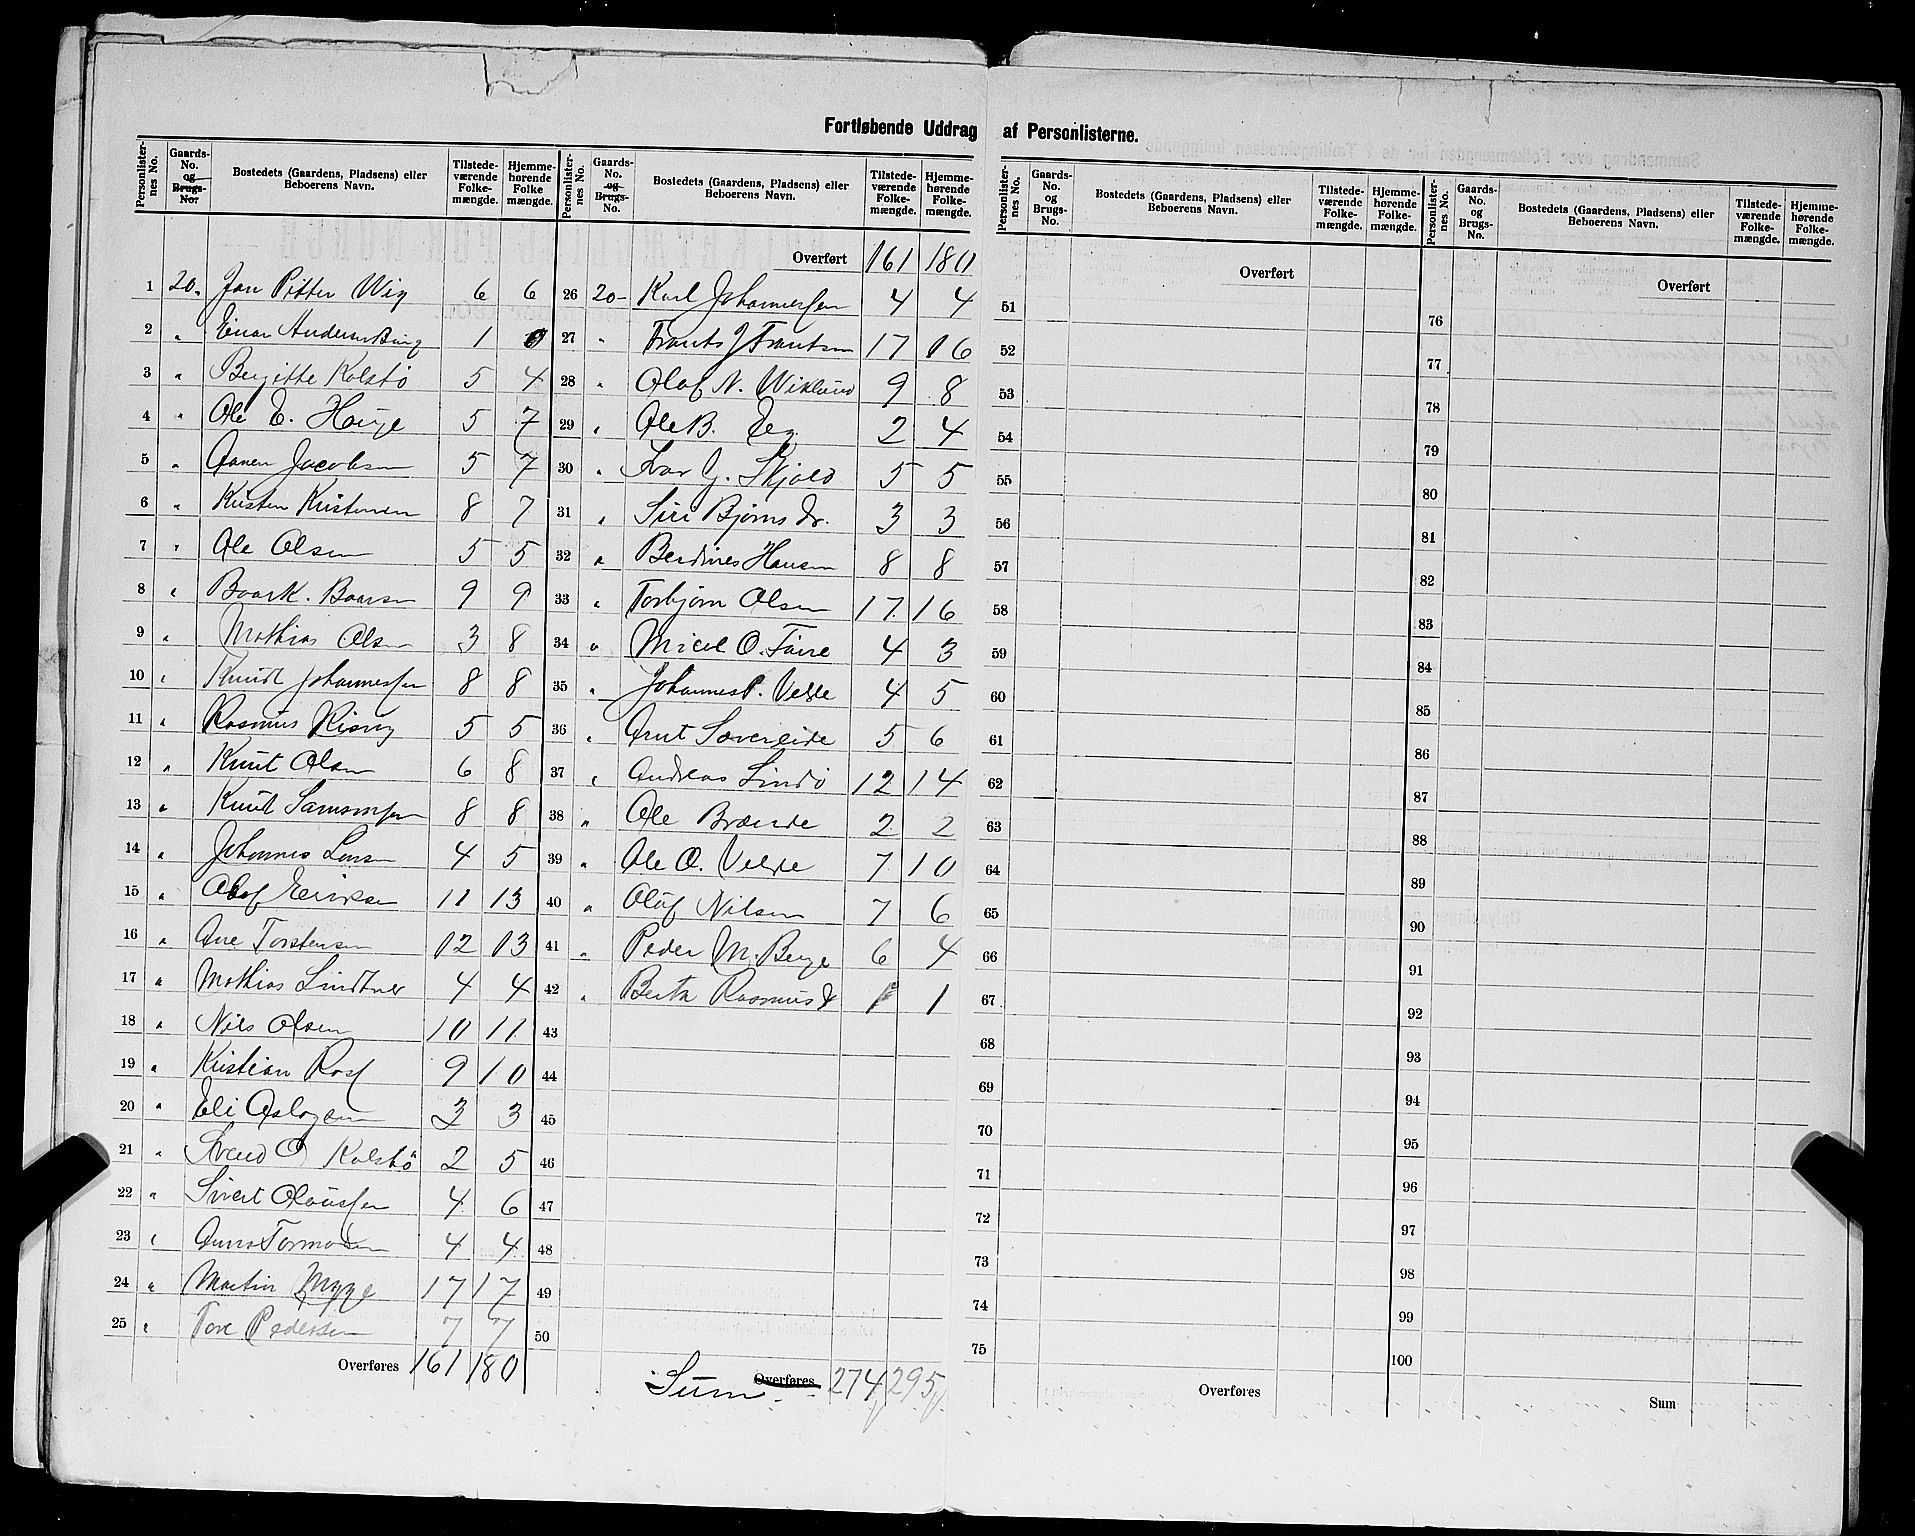 Fortløbende Uddrag af Personlisterne.
Personlister-nes No. | Gaards-No. og Brugs-No. | Bostedets (Gaardens, Pladsens) eller Beboerens Navn. | Tilstede-værende Folke-mængde. | Hjemme-hørende Folke mængde.
1 20 Jan Pitter Wig 6 6
2 " Einar Andersen Bing 1 0
3 " Bergitte Kolstö 5 4
4 " Ole E. Hauge 5 7
5 " Aanen Jacobsen 5 7
6 " Kristen Kristensen 8 7
7 " Ole Olsen 5 5
8 " Baar K. Baarsen 9 9
9 " Mathias Olsen 3 8
10 " Knudt Johannessen 8 8
11 " Rasmus 5 5
12 " Knut Olsen 6 8
13 " Knut Samsonsen 8 8
14 " Johannes Larsen 4 5
15 " Olaf Eriksen 11 13
16 " Ane Torstensen 12 13
17 " Mathias Lindtner 4 4
18 " Nils Olsen 10 11
19 " Kristian Ross 9 10
20 " Eli Aslagsen 3 3
21 " Svend O Kolstö 2 5
22 " Sivert Olaussen 4 6
23 " Anna Tormodsen 4 4
24 " Martin Mygge 17 17
25 " Tore Pedersen 7 7
Overføres 161 180
Personlister-nes No. | Gaards-No. og Brugs-No. | Bostedets (Gaardens, Pladsens) eller Beboerens Navn. | Tilstede-værende Folke-mængde. | Hjemme-hørende Folke-mængde.
Overført 161 180
26 20 Karl Johannessen 4 4
27 " Frants J Frantsen 17 16
28 " Olaf N. Wiklund 9 8
29 " Ole B. Eeg 2 4
30 " Ivar G. Skjold 5 5
31 " Siri Bjørnsdr. 3 3
32 " Berdines Hansen 8 8
33 " Torbjørn Olsen 17 16
34 " Micel O. 4 3
35 " Johannes P. Velde 4 5
36 " Arnt Sævereide 5 6
37 " Andreas Lindö 12 14
38 " Ole Brænde 2 2
39 " Ole O. Velde 7 10
40 " Oluf Nilsen 7 6
41 " Peder M. Berge 6 4
42 " Berta Rasmusd 1 1
43
44
45
46
47
48
49
50
Sum Overføres 274 295
Personlister-nes No. | Gaards-No. og Brugs-No. | Bostedets (Gaardens, Pladsens) eller Beboerens Navn. | Tilstede-værende Folke-mængde. | Hjemme-hørende Folke-mængde.
Overført
51
52
53
54
55
56
57
58
59
60
61
62
63
64
65
66
67
68
69
70
71
72
73
74
75
Overføres
Personlister-nes No. | Gaards-No. og Brugs-No. | Bostedets (Gaardens, Pladsens) eller Beboerens Navn. | Tilstede-værende Folke-mængde. | Hjemme-hørende Folke-mængde.
Overført
76
77
78
79
80
81
82
83
84
85
86
87
88
89
90
91
92
93
94
95
96
97
98
99
100
Sum